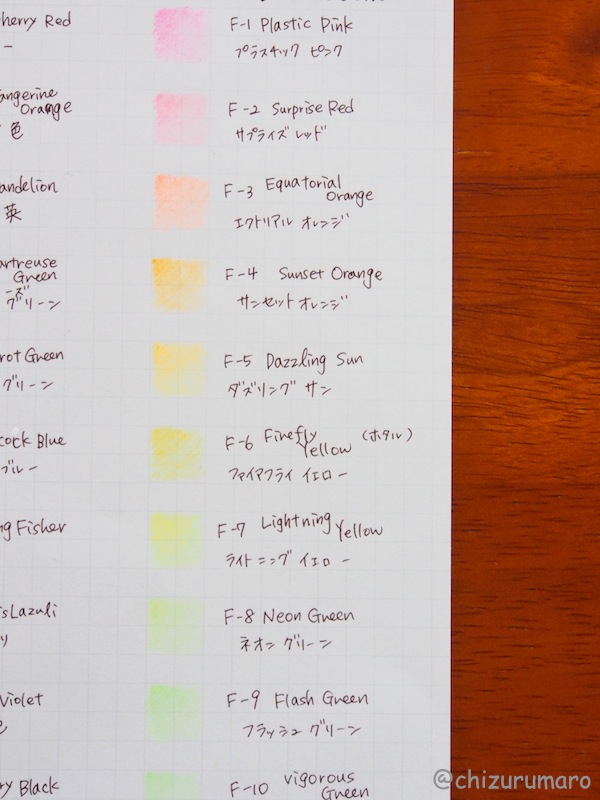 herry Red
ー
angerine
Orange
色
andelion
英
artreuse
Green
ーズ
グリーン
rot Green
グリーン
cock Blue
ブルー
ng Fisher
isLazuli
リ
Violet
ry Black
F-1 Plastic Pink
プラスチック ピンク
F-2 Surprise Red
サプライズ レッド
F-3 Equatorial
Orange
エクトリアル オレンジ
F-4 Sunset Orange
サンセット オレンジ
F-5 Dazzling Sun
ダズリング サン
F-6 Firefly
Yellow (ホタル)
ファイアフライ イエロー
F-7 Lightning
Yellow
ライトニング イエロー
F-8 Neon Green
ネオン グリーン
F-9 Flash Green
フラッシュ グリーン
F-10 vigorous
Green
@chizurumaro